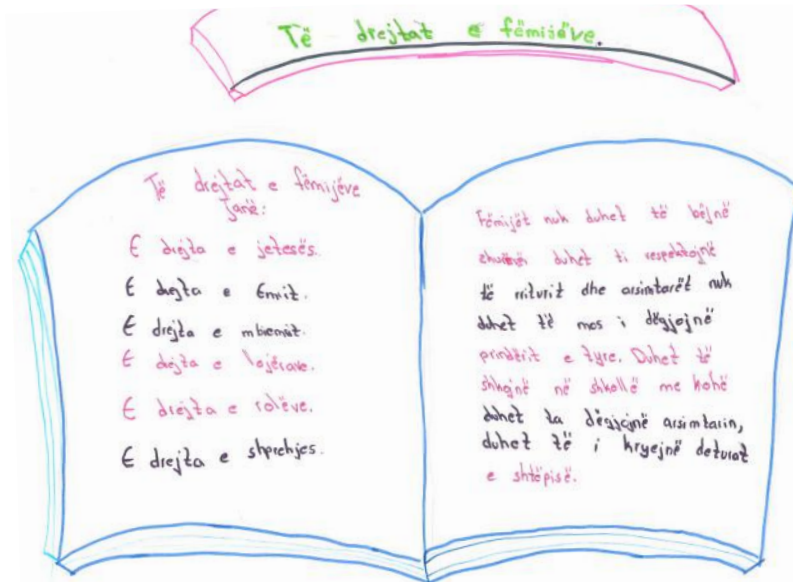 Të drejtat e fëmijëve.
Të drejtat e fëmijëve
Janë:
E drejta e jetesës.
E drejta e Emrit.
E drejta e mbiemrit.
E drejta e lojërave.
E drejta e rolëve.
E drejta e shprehjes.
Fëmijët nuk duhet të bëjnë
duhet ti respektojnë
të rriturit dhe arsimtarët nuk
duhet të mos i dëgjojnë
prindërit e tyre. Duhet të
shkojnë në shkollë me kohë
duhet ta dëgjojnë arsimtarin,
duhet të i kryejnë deturat
e shtëpisë.